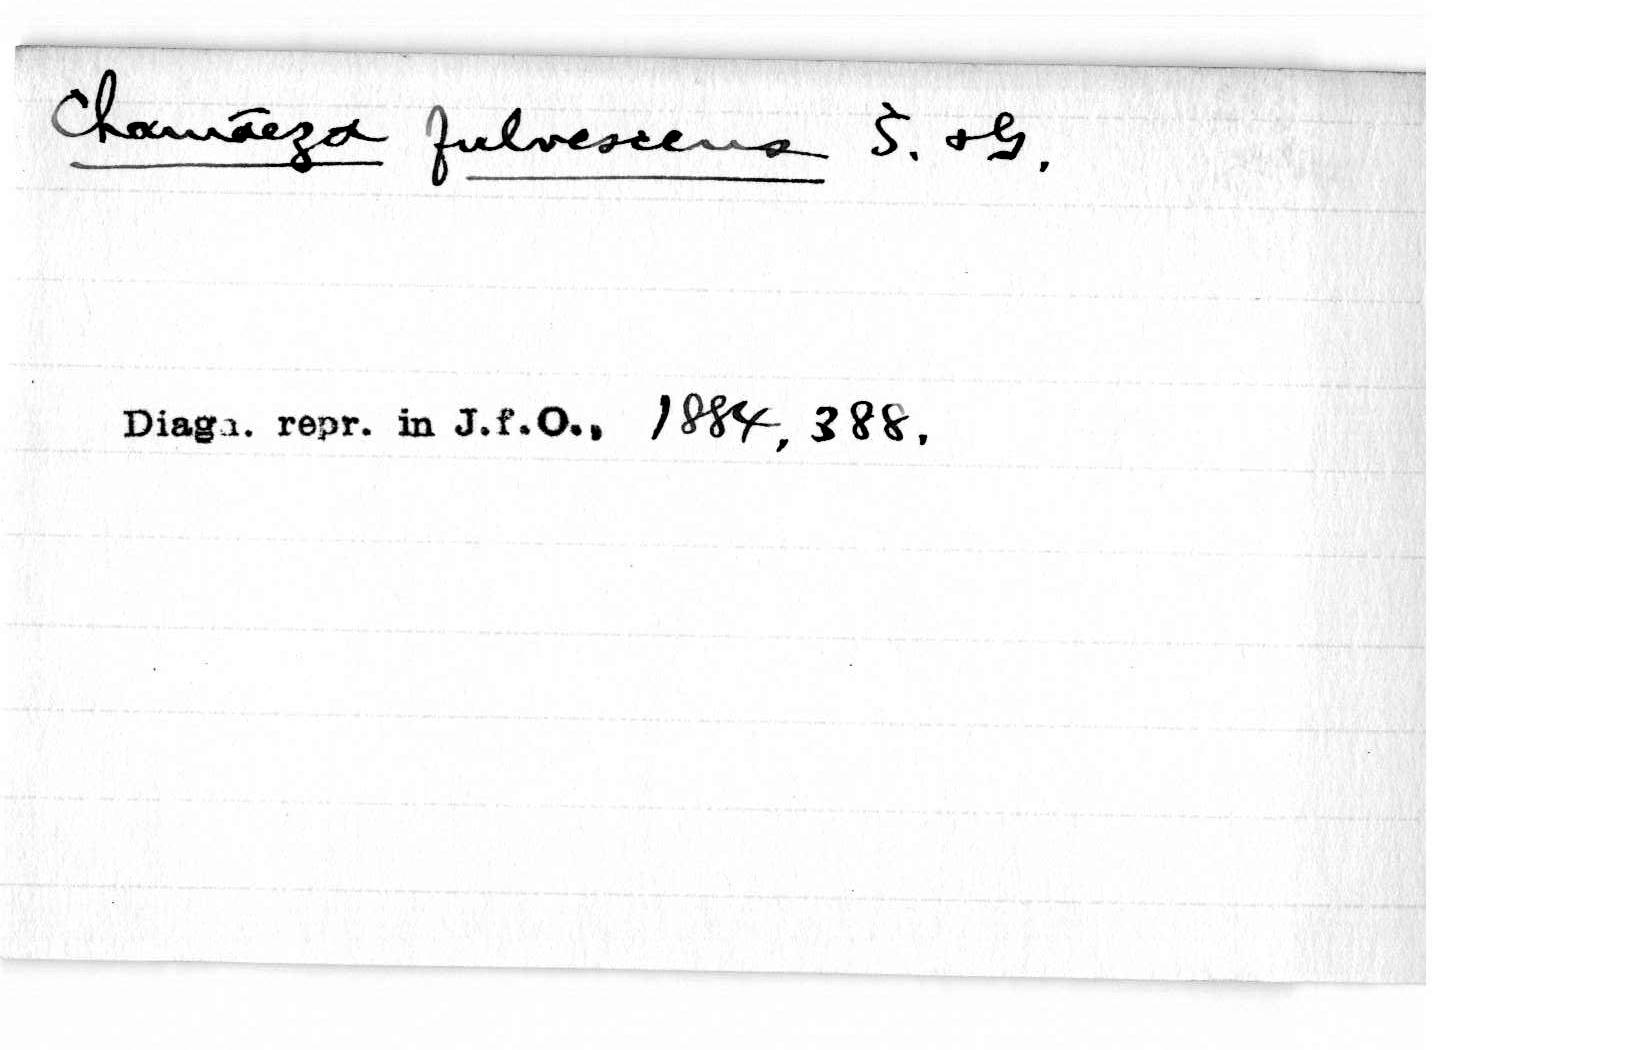 Chamaeza fulvescens S. + G.
Diagn. repr. in J.f.O., 1884, 388.